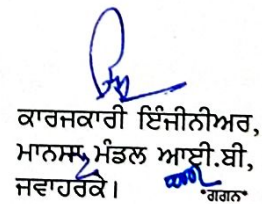 ਕਾਰਜਕਾਰੀ ਇੰਜੀਨੀਅਰ,
ਮਾਨਸਾ ਮੰਡਲ ਆਈ.ਬੀ,
ਜਵਾਹਰਕੇ।
"ਗਗਨ"